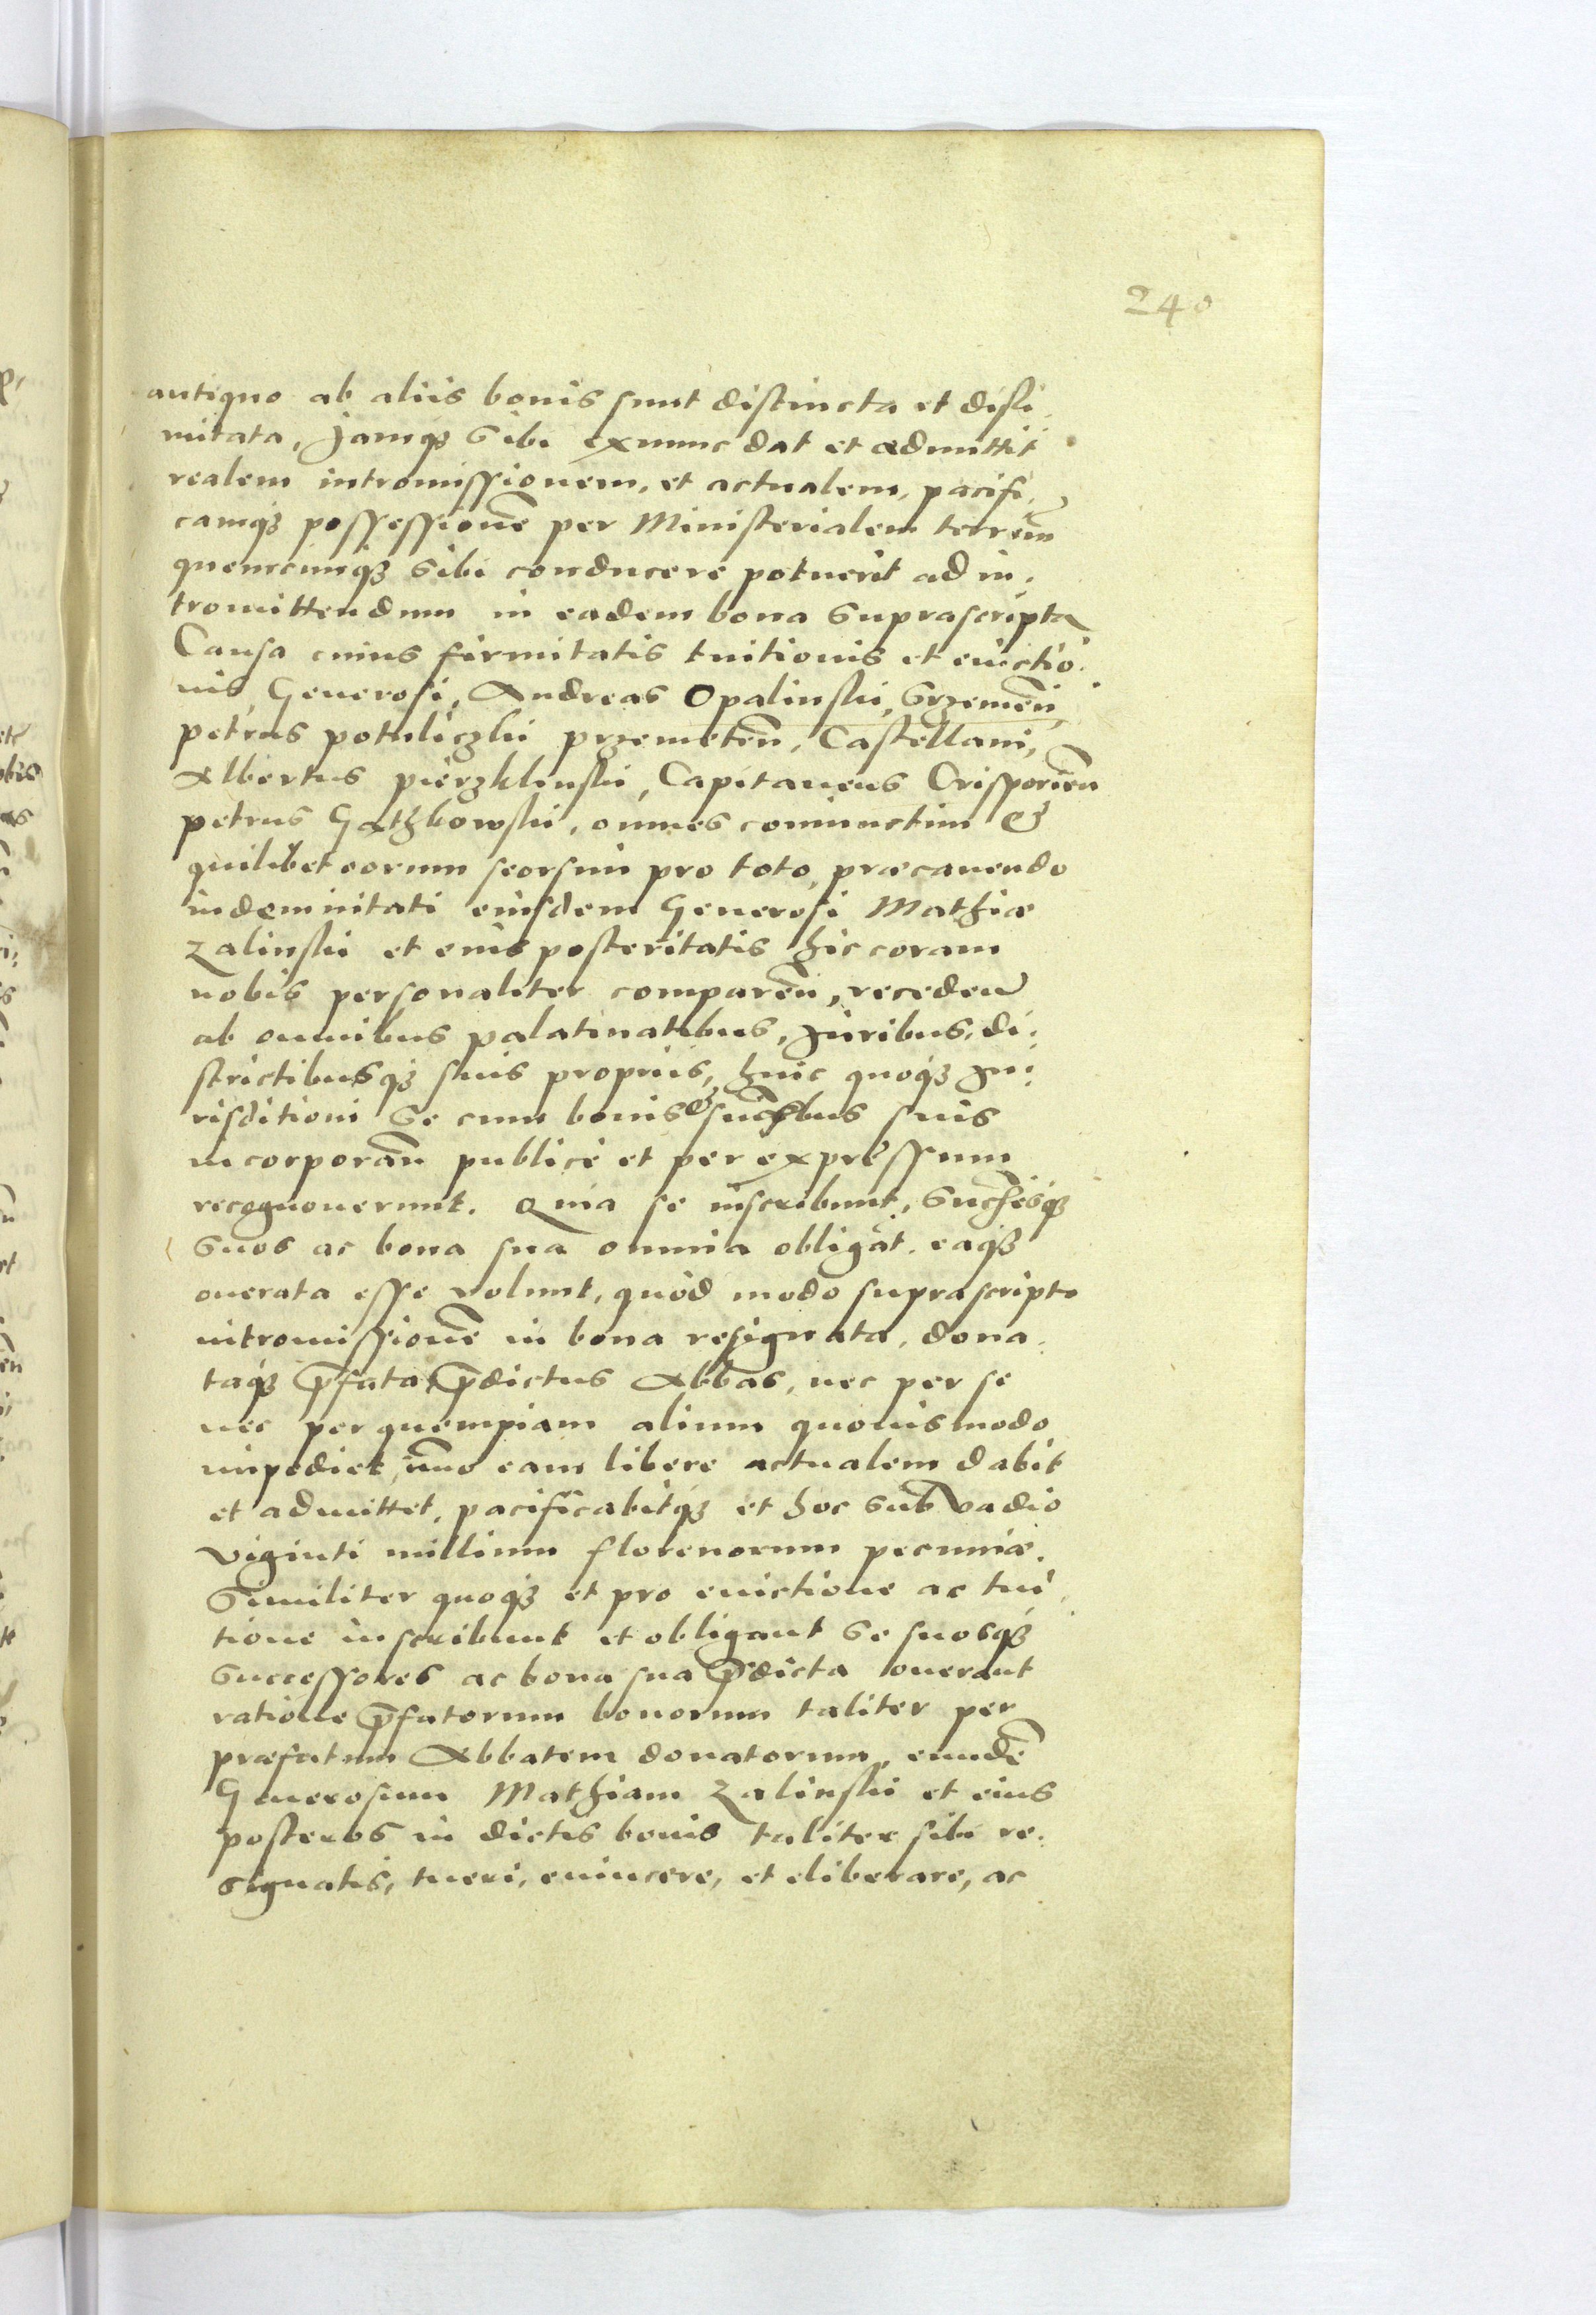 240
antiquo ab aliis bonis sunt distincta et disli,
mitata, Jamqȝ sibi exnunc dat et admittit
realem intromissionem, et actualem, pacifi,
camqȝ possessionē per Ministerialem terrēm
quemcunqȝ sibi conducere potuerit ad in,
tromittendum in eadem bona suprascripta
Causa cuius firmitatis tuitionis et euictio,
nis, Generosi, Andreas Opalinski, Srzemēn,
petrus potuliczki przemetēn, Castellani,
Albertus pierzklinski, Capitaneus Crisporiēn
petrus Gatzkowski, omnes coniunctim &
quilibet eorum seorsim pro toto, præcauendo
indemnitati eiusdem Generosi Mathiæ
Zalinski et eius posteritatis hic coram
nobis personaliter comparēn, receden
ab omnibus palatinatibus, Juribus, di,
strictibusqȝ suis propriis, huic quoqȝ Ju,
risditioni se cum bonis & succbus suis
incorporān publicè et per expressum
recognouerunt. Quia se inscribunt, Succesqȝ
suos ac bona sua omnia obligāt, eaqȝ
onerata esse volunt, quòd modo suprascripto
intromissionē in bona resignata, dona,
taqȝ p̄fata, p̄dictus Abbas, nec per se
nec per quempiam alium quouismodo
impediet, im̄o eam libere actualem dabit
et admittet, pacificabitqȝ et hoc sub vadio
viginti millium florenorum pecuniæ,
Similiter quoqȝ et pro euictione ac tui,
tione inscribunt et obligant se suosqȝ
successores ac bona sua p̄dicta onerant
ratione p̄fatorum bonorum taliter per
præfatum Abbatem donatorum, eundē
Generosum Mathiam Zalinski et eius
posteros in dictis bonis taliter sibi re,
signatis, tueri, euincere, et eliberare, ac